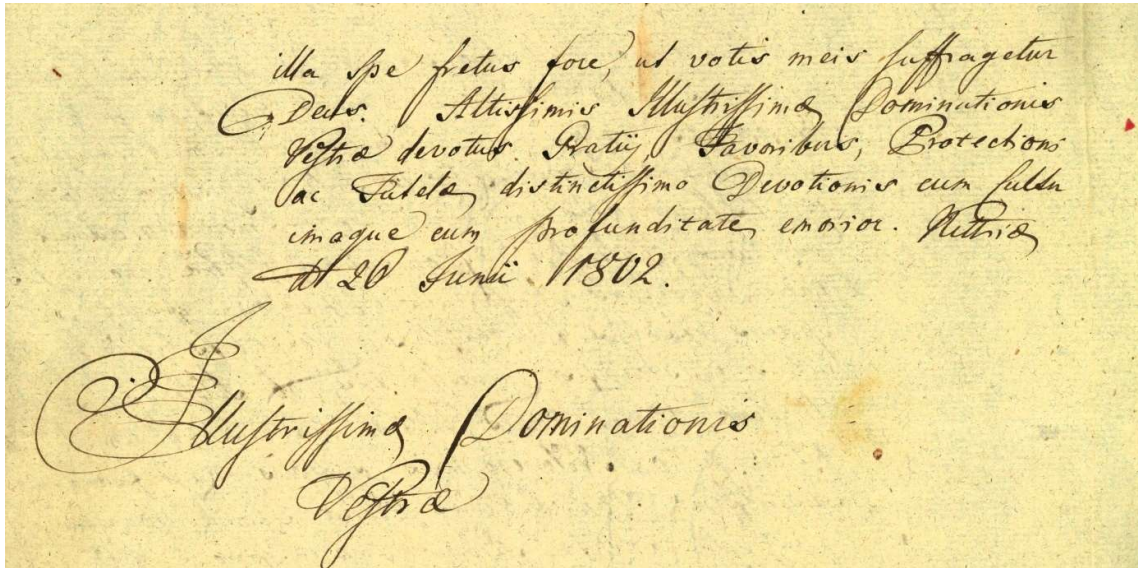 illa spe fretus fore, ut votis meis suffragetur
Deus. Altissimis Illustrissimæ Dominationis
Vestræ devotus Gratiij, Favoribus, Protectioni
ac Tutelæ, distinctissimo Devotionis cum cultu
imaque cum profunditate emorior. Nittriæ
dt 26 Junii 1802.
Illustrissimæ Dominationis
Vestræ